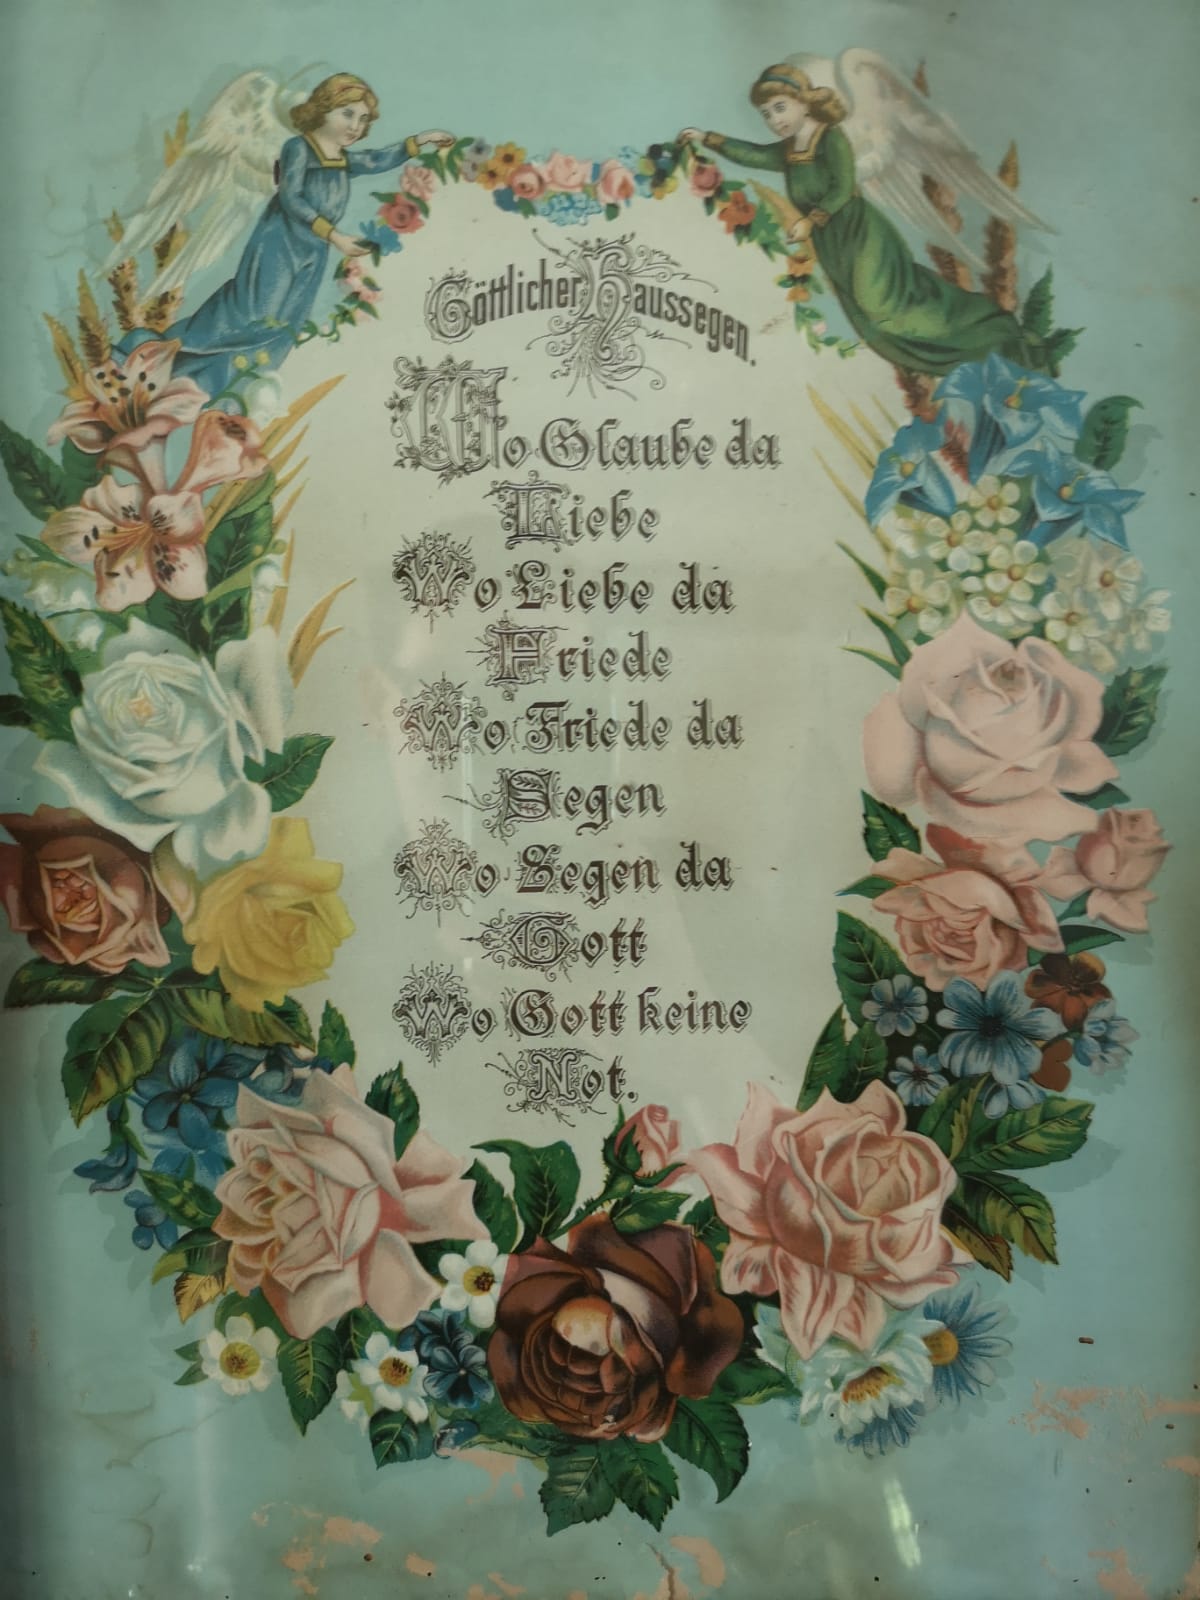 Göttlicher Haussegen.
Wo Glaube da
Liebe
Wo Liebe da
Friede
Wo Friede da
Segen
Wo Segen da
Gott
Wo Gott keine
Not.